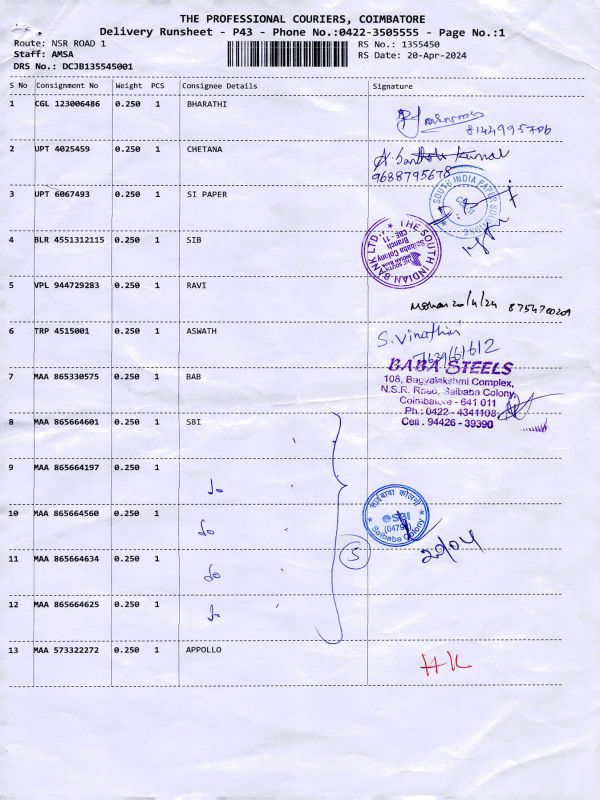 THE PROFESSIONAL COURIERS, COIMBATORE
Delivery Runsheet - P43 - Phone No.:0422-3505555 - Page No.:1
Route: NSR ROAD 1
RS No.: 1355450
Staff: AMSA
RS Date: 20-Apr-2024
DRS No.: DCJB135545001
S No Consignment No Weight PCS Consignee Details Signature
1 CGL 123006486 0.250 1 BHARATHI
8144995706
2 UPT 4025459 0.250 1 CHETANA
9688795678
3 UPT 6067493 0.250 1 SI PAPER
SOUTH INDIA PAPER
4 BLR 4551312115 0.250 1 SIB
THE SOUTH INDIAN BANK LTD.
Saibaba Colony
Branch
CBE - 11
5 VPL 944729283 0.250 1 RAVI
Mohan 20/4/24 8754700209
6 TRP 4515001 0.250 1 ASWATH
S. Vinathini
7639661612
7 MAA 865330575 0.250 1 BAB
BABA STEELS
108, Bagyalakshmi Complex,
N.S.R. Road, Saibaba Colony,
Coimbatore - 641 011
Ph.: 0422 - 4341108
Cell : 94426 - 39390
8 MAA 865664601 0.250 1 SBI
9 MAA 865664197 0.250 1 do
10 MAA 865664560 0.250 1 do
साईबाबा कोलनी
SBI
Saibaba Colony
11 MAA 865664634 0.250 1 do
5
20/04
12 MAA 865664625 0.250 1 do
13 MAA 573322272 0.250 1 APPOLLO
HK